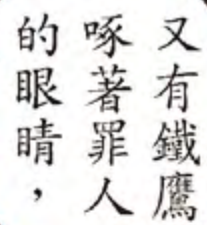 又有鐵鷹
啄著罪人
的眼睛，